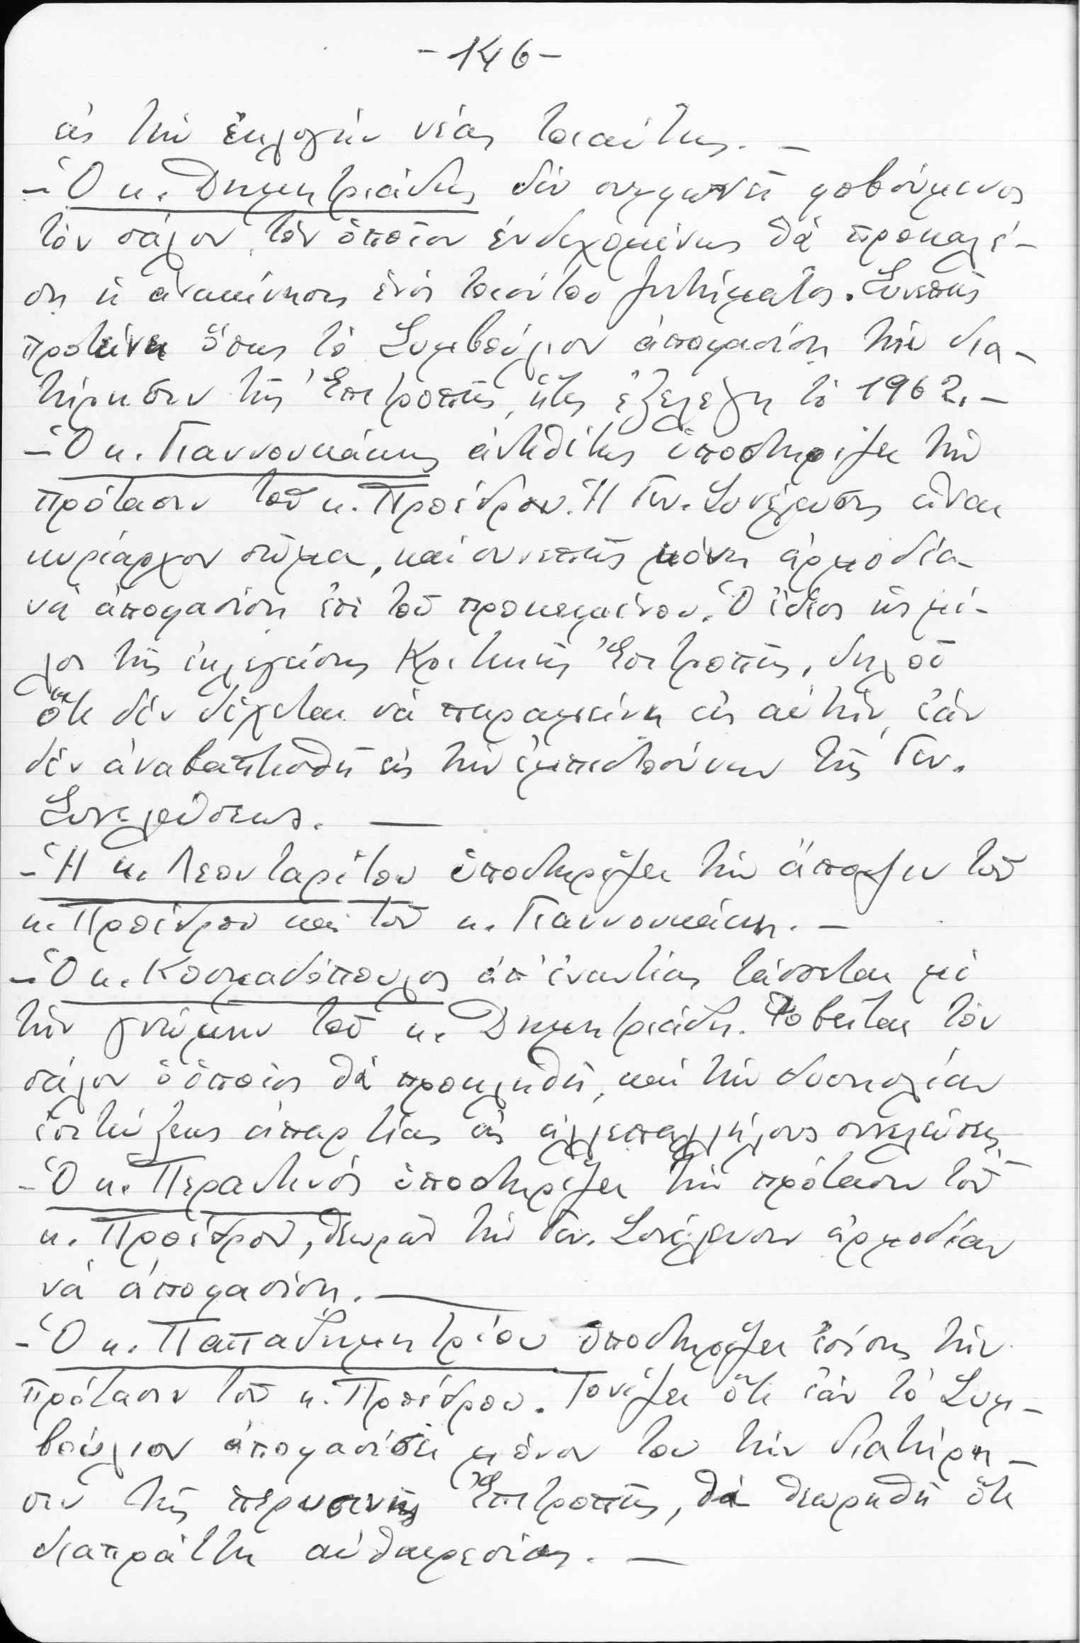 -146-
εἰς τὴν ἐκλογὴν νέας τοιαύτης. -
-Ὁ κ. Δημητριάδης δὲν συμφωνεῖ φοβούμενος
τὸν σάλον τὸν ὁποῖον ἐνδεχομένως θὰ προκαλέ-
σῃ ἡ ἀνακίνησις ἑνὸς τοιούτου ζητήματος. Συνεπῶς
προτείνει ὅπως τὸ Συμβούλιον ἀποφασίσῃ τὴν δια-
τήρησιν τῆς Ἐπιτροπῆς, ἥτις ἐξελέγη τὸ 1962.-
-Ὁ κ. Γιαννουκάκης ἀντιθέτως ὑποστηρίζει τὴν
πρότασιν τοῦ κ. Προέδρου. Ἡ Γεν. Συνέλευσις εἶναι
κυρίαρχον σῶμα, καὶ συνεπῶς μόνη ἁρμοδία
νὰ ἀποφασίσῃ ἐπὶ τοῦ προκειμένου. Ὁ ἴδιος ὡς μέ-
λος τῆς ἐκλεγείσης Κριτικῆς Ἐπιτροπῆς, δηλοῖ
ὅτι δὲν δέχεται νὰ παραμείνῃ εἰς αὐτὴν, ἐὰν
δὲν ἀναβαπτισθῇ εἰς τὴν ἐμπιστοσύνην τῆς Γεν.
Συνελεύσεως. -
-Ἡ κ. Λεονταρίτου ὑποστηρίζει τὴν ἄποψιν τοῦ
κ. Προέδρου καὶ τοῦ κ. Γιαννουκάκη. -
-Ὁ κ. Κοσμαδόπουλος ἀπ' ἐναντίας τάσσεται μὲ
τὴν γνώμην τοῦ κ. Δημητριάδη. Φοβεῖται τὸν
σάλον ὁ ὁποῖος θὰ προκληθῇ, καὶ τὴν δυσκολίαν
ἐπιτεύξεως ἀπαρτίας εἰς ἀλλεπαλλήλους συνελεύσεις
-Ὁ κ. Περαντινός ὑποστηρίζει τὴν πρότασιν τοῦ
κ. Προέδρου, θεωρεῖ τὴν Γεν. Συνέλευσιν ἁρμοδίαν
νὰ ἀποφασίσῃ. -
-Ὁ κ. Παπαδημητρίου ὑποστηρίζει ἐπίσης τὴν
πρότασιν τοῦ κ. Προέδρου. Τονίζει ὅτι ἐὰν τὸ Συμ-
βούλιον ἀποφασίσῃ μόνον του τὴν διατήρη-
σιν τῆς περυσινῆς Ἐπιτροπῆς, θὰ θεωρηθῇ ὅτι
διαπράττει αὐθαιρεσίας. -